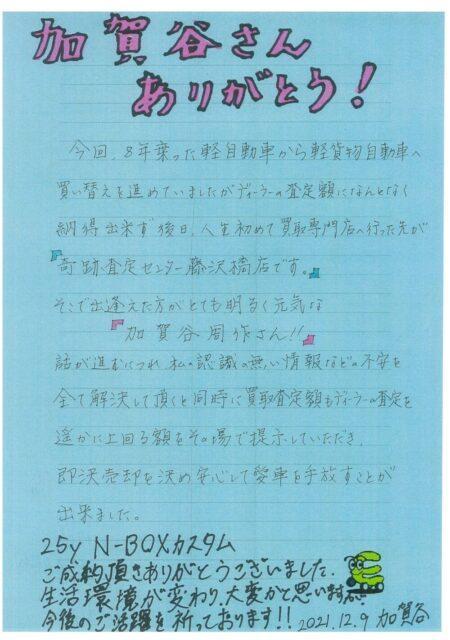 加賀谷さん
ありがとう!
今回、8年乗った軽自動車から軽貨物自動車へ
買い替えを進めていましたがディーラーの査定額になんとなく
納得出来ず後日、人生初めて買取専門店へ行った先が
『奇跡査定センター藤沢橋店です。』
そこで出逢えた方がとても明るく元気な
『加賀谷周作さん!!』
話が進むにつれ、私の認識の無い情報などの不安を
全て解決して頂くと同時に買取査定額もディーラーの査定を
遥かに上回る額をその場で提示していただき、
即決売却を決め安心して愛車を手放すことが
出来ました。
25y N-BOXカスタム
ご成約頂きありがとうございました。
生活環境が変わり、大変かと思いますが
今後のご活躍を祈っております!! 2021.12.9 加賀谷